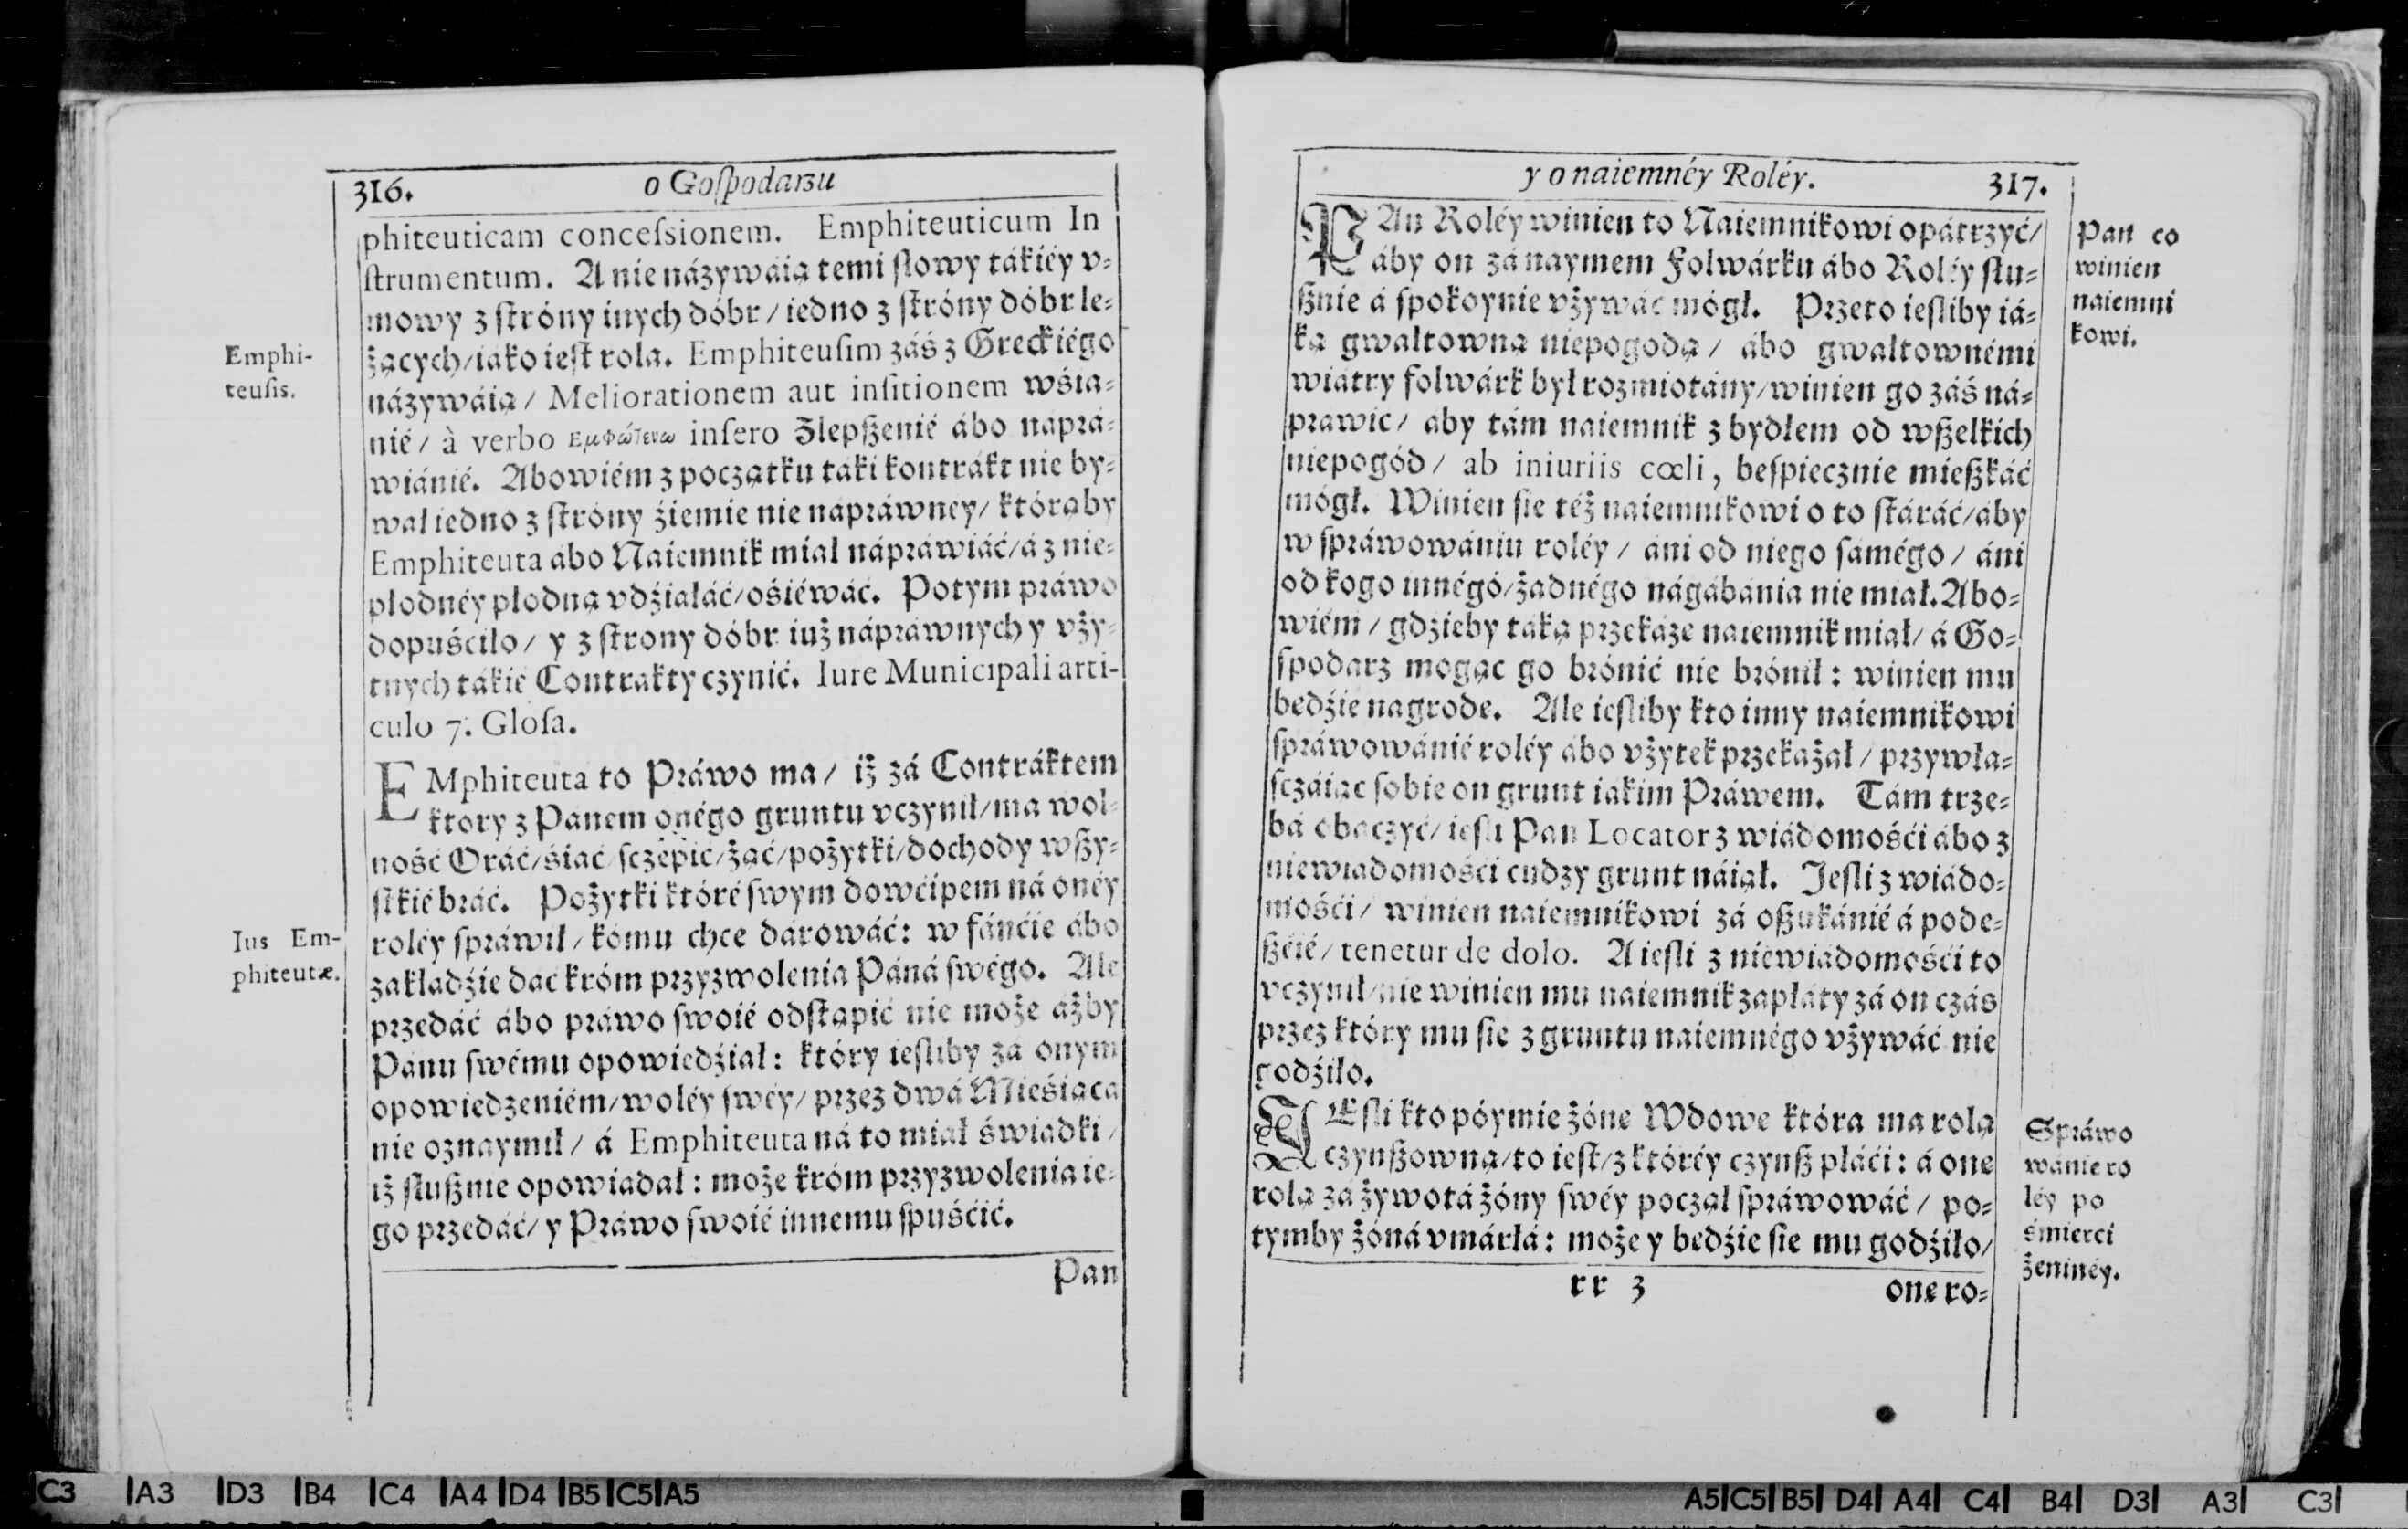 316. o Goſpodarzu
phiteuticam conceſsionem. Emphiteuticum In
ſtrumentum. A nie názywáią temi ſłowy tákiéy v-
mowy z ſtróny inych dóbr / iedno z ſtróny dóbr le-
żących / iáko ieſt rola. Emphiteuſim záś z Greckiégo
názywáią / Meliorationem aut inſitionem wśia-
nié / à verbo Εμφώτενω inſero Zlepſzenié ábo naprá-
wiánié. Abowiém z początku táki kontrákt nie by-
wał iedno z ſtróny źiemie nie napráwney / którąby
Emphiteuta abo Naiemnik miał nápráwiáć / á z nie-
płodnéy płodną vdźiáłáć / ośiéwáć. Potym práwo
dopuśćiło / y z ſtrony dóbr iuż nápráwnych y vży-
tnych tákié Contrakty czynić. Iure Municipali arti-
culo 7. Gloſa.
EMphiteuta to Práwo ma / iż zá Contráktem
ktory z Panem onégo gruntu vczynił / ma wol-
ność Oráć / śiać ſczepić / żąć / pożytki / dochody wſzy-
ſtkié bráć. Pożytki któré ſwym dowćipem ná onéy
roléy ſpráwił / kómu chce dárowáć: w fánćie ábo
zakładźie dać króm przyzwolenia Páná ſwégo. Ale
przedáć ábo práwo ſwoié odſtąpić nie może áżby
Pánu ſwému opowiedźiał: który ieſliby zá onym
opowiedzeniém / woléy ſwéy / przez dwá Mieśiąca
nie oznaymił / á Emphiteuta ná to miał świadki /
iż ſłuſznie opowiadał: może króm przyzwolenia ie-
go przedáć / y Práwo ſwoié innemu ſpuśćić.
Pan
Emphi-
teuſis.
Ius Em-
phiteutæ.
y o naiemnéy Roléy. 317.
PAn Roléy winien to Naiemnikowi opátrzyć /
áby on zá naymem Folwárku ábo Roléy ſłu-
ſznie á ſpokoynie vżywáć mógł. Przeto ieſliby iá-
ką gwałtowną niepogodą / ábo gwałtownémi
wiátry folwárk był rozmiotány / winien go záś ná-
prawić / aby tám naiemnik z bydłem od wſzelkich
niepogód / ab iniuriis cœli, beſpiecznie mieſzkáć
mógł. Winien ſie téż naiemnikowi o to ſtáráć / áby
w ſpráwowániu roléy / áni od niego ſámégo / áni
od kogo innégó / żadnégo nágábánia nie miał. Abo-
wiém / gdźieby táką przekáze naiemnik miał / á Go-
ſpodarz mogąc go brónić nie brónił: winien mu
bedźie nagrode. Ale ieſliby kto inny naiemnikowi
ſpráwowánié roléy ábo vżytek przekażał / przywła-
ſczáiąc ſobie on grunt iakim Práwem. Tám trze-
bá obaczyć / ieſli Pan Locator z wiádomośći ábo z
niewiadomośći cudzy grunt náiął. Jeſli z wiádo-
mośći / winien naiemnikowi zá oſzukánié á pode-
ſzćié / tenetur de dolo. A ieſli z niewiádomośći to
vczynił / nie winien mu naiemnik zapłáty zá on czás
przez który mu ſie z gruntu naiemnégo vżywáć nie
godźiło.
IEſli kto póymie żóne Wdowe która ma rolą
czynſzowną / to ieſt / z któréy czynſz płáći: á one
rolą zá żywotá żóny ſwéy począł ſpráwowáć / po-
tymby żóná vmárłá: może y bedźie ſie mu godźiło /
rr 3 one ro-
Pan co
winien
naiemni
kowi.
Spráwo
wanie ro
léy po
śmierci
żeninéy.
C3 A3 D3 B4 C4 A4 D4 B5 C5 A5
A5 C5 B5 D4 A4 C4 B4 D3 A3 C3